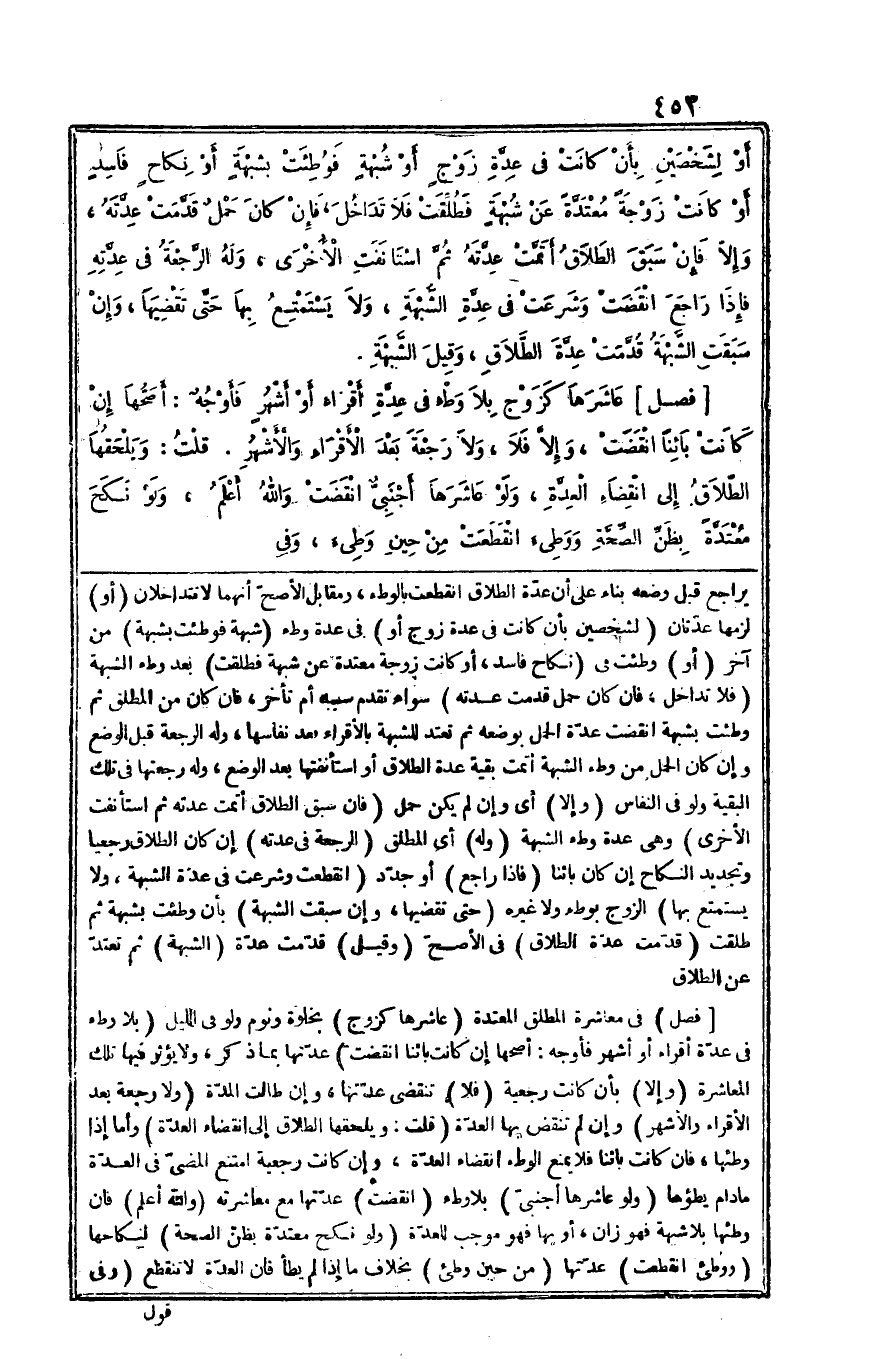 ٤٥٣
أَوْ لِشَخْصَيْنِ بِأَنْ كَانَتْ فى عِدَّةِ زَوْجٍ أَوْ شُبْهَةٍ فَوُطِئَتْ بِشُبْهَةٍ أَوْ نِكَاحٍ فَاسِدٍ
أَوْ كَانَتْ زَوْجَةً مُعْتَدَّةً عَنْ شُبْهَةٍ فَطُلِّقَتْ فَلاَ تَدَاخُلَ ، فَإِنْ كَانَ حَمْلٌ قَدَّمَتْ عِدَّتَهُ ،
وَإِلاَّ فَإِنْ سَبَقَ الطَّلاَقُ أَتَمَّتْ عِدَّتَهُ ثُمَّ اسْتَأْنَفَتِ الْأُخْرَى ، وَلَهُ الرَّجْعَةُ فى عِدَّتِهِ
فَإِذَا رَاجَعَ انْقَضَتْ وَشَرَعَتْ فى عِدَّةِ الشُّبْهَةِ ، وَلاَ يَسْتَمْتِعُ بِهَا حَتَّى تَقْضِيَهَا ، وَإِنْ
سَبَقَتِ الشُّبْهَةُ قُدِّمَتْ عِدَّةَ الطَّلاَقِ ، وَقِيلَ الشُّبْهَةِ .
[ فصل ] عَاشَرَهَا كَزَوْجٍ بِلاَ وَطْء فى عِدَّةِ أَقْرَاء أَوْ أَشْهُرٍ فَأَوْجُهٌ : أَصَحُّهَا إِنْ
كَانَتْ بَائِنًا انْقَضَتْ ، وَإِلاَّ فَلاَ ، وَلاَ رَجْعَةَ بَعْدَ الْأَقْرَاءِ وَالْأَشْهُرِ . قلتُ : وَيَلْحَقُهَا
الطَّلاَقُ إِلى انْقِضَاءِ الْعِدَّةِ ، وَلَوْ عَاشَرَهَا أَجْنَبِيٌّ انْقَضَتْ وَاللهُ أَعْلَمُ ، وَلَوْ نَكَحَ
مُعْتَدَّةً بِظَنِّ الصِّحَّةِ وَوَطِىءَ انْقَطَعَتْ مِنْ حِينِ وَطِىءَ ، وَفِي
يراجع قبل وضعه بناء على أن عدّة الطلاق انقطعت بالوطء ، ومقابل الأصحّ أنهما لاتتداخلان ( أو )
لزمها عدّتان ( لشخصين بأن كانت فى عدة زوج أو ) فى عدة وطء ( شبهة فوطئت بشبهة ) من
آخر ( أو ) وطئت فى ( نكاح فاسد ، أو كانت زوجة معتدة عن شبهة فطلقت ) بعد وطء الشبهة
( فلا تداخل ، فان كان حمل قدمت عدته ) سواء تقدم سببه أم تأخر ، فان كان من المطلق ثم
وطئت بشبهة انقضت عدّة الحمل بوضعه ثم تعتد للشبهة بالأقراء بعد نفاسها ، وله الرجعة قبل الوضع
وإن كان الحمل من وطء الشبهة أتمت بقية عدة الطلاق أو استأنفتها بعد الوضع ، وله رجعتها فى تلك
البقية ولو فى النفاس ( وإلا ) أى وإن لم يكن حمل ( فان سبق الطلاق أتمت عدته ثم استأنفت
الأخرى ) وهى عدة وطء الشبهة ( وله ) أى المطلق ( الرجعة فى عدته ) إن كان الطلاق رجعيا
وتجديد النكاح إن كان بائنا ( فاذا راجع ) أو جدّد ( انقطعت وشرعت فى عدّة الشبهة ، ولا
يستمتع بها ) الزوج بوطء ولا غيره ( حتى تقضيها ، وإن سبقت الشبهة ) بأن وطئت بشبهة ثم
طلقت ( قدّمت عدّة الطلاق ) فى الأصحّ ( وقيل ) قدّمت عدّة ( الشبهة ) ثم تعتدّ
عن الطلاق
[ فصل ) فى معاشرة المطلق المعتدة ( عاشرها كزوج ) بخلوة ونوم ولو فى الليل ( بلا وطء
فى عدّة أقراء أو أشهر فأوجه : أصحها إن كانت بائنا انقضت ) عدّتها بما ذكر ، ولا يؤثر فيها تلك
المعاشرة ( وإلا ) بأن كانت رجعية ( فلا ) تنقضى عدّتها ، وإن طالت المدّة ( ولا رجعة بعد
الأقراء والأشهر ) وإن لم تنقض بها العدّة ( قلت : ويلحقها الطلاق إلى انقضاء العدّة ) وأما إذا
وطئها ، فان كانت بائنا فلا يمنع الوطء انقضاء العدّة ، وإن كانت رجعية امتنع المضىّ فى العدّة
مادام يطؤها ( ولو عاشرها أجنبىّ ) بلا وطء ( انقضت ) عدّتها مع معاشرته ( والله أعلم ) فان
وطئها بلا شبهة فهو زان ، أو بها فهو موجب للعدّة ( ولو نكح معتدة بظنّ الصحة ) لنكاحها
( ووطئ انقطعت ) عدّتها ( من حين وطئ ) بخلاف ما إذا لم يطأ فان العدّة لا تنقطع ( وفى
قول